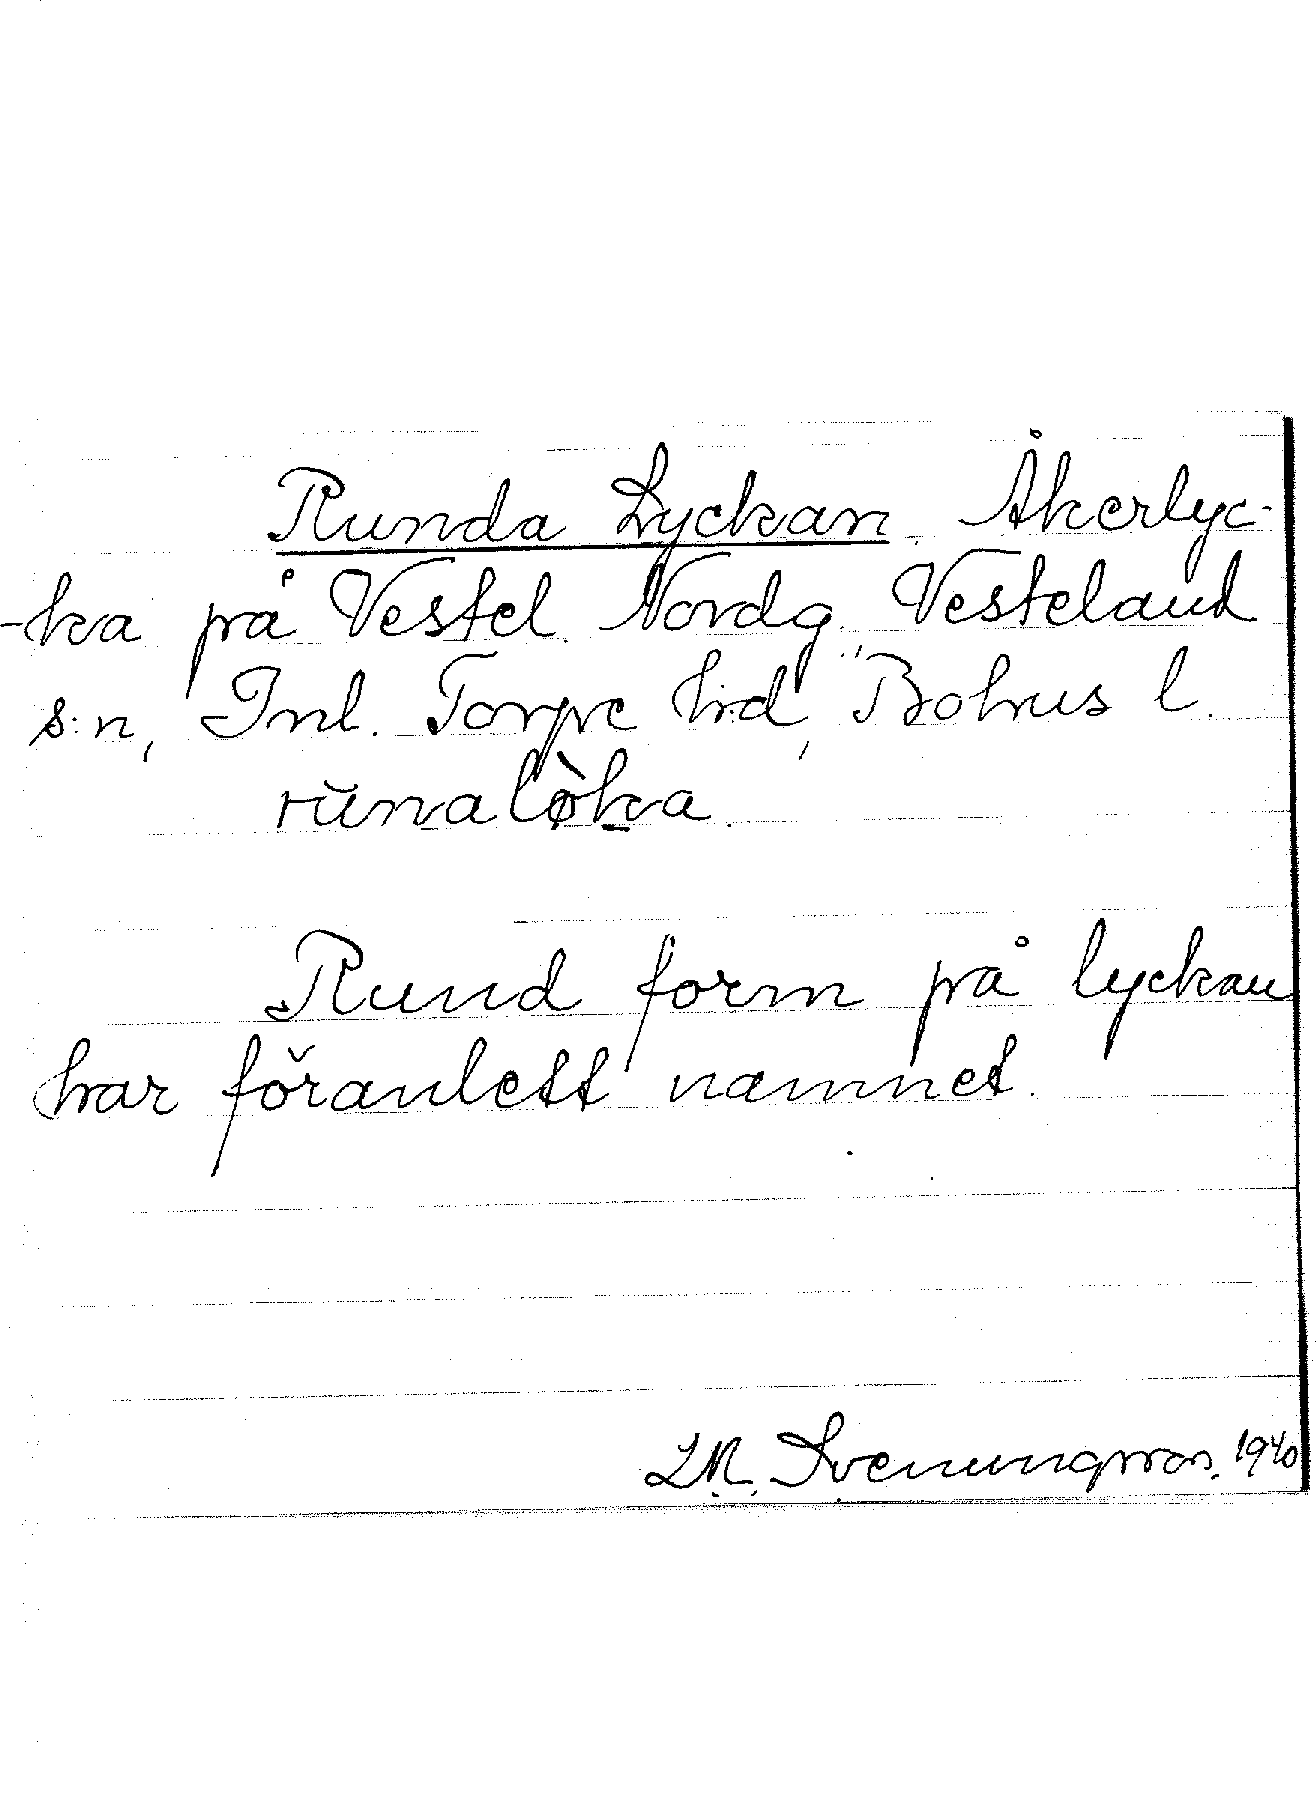 Runda Lyckan. Åkerlyc-
-ka på Vestel. Nordg., Vesteland
s:n, Inl. Torpe h:d, Bohus l.
runalø̀ka.
Rund form på lyckan
har föranlett namnet.
L.R. Svenungsson. 1940